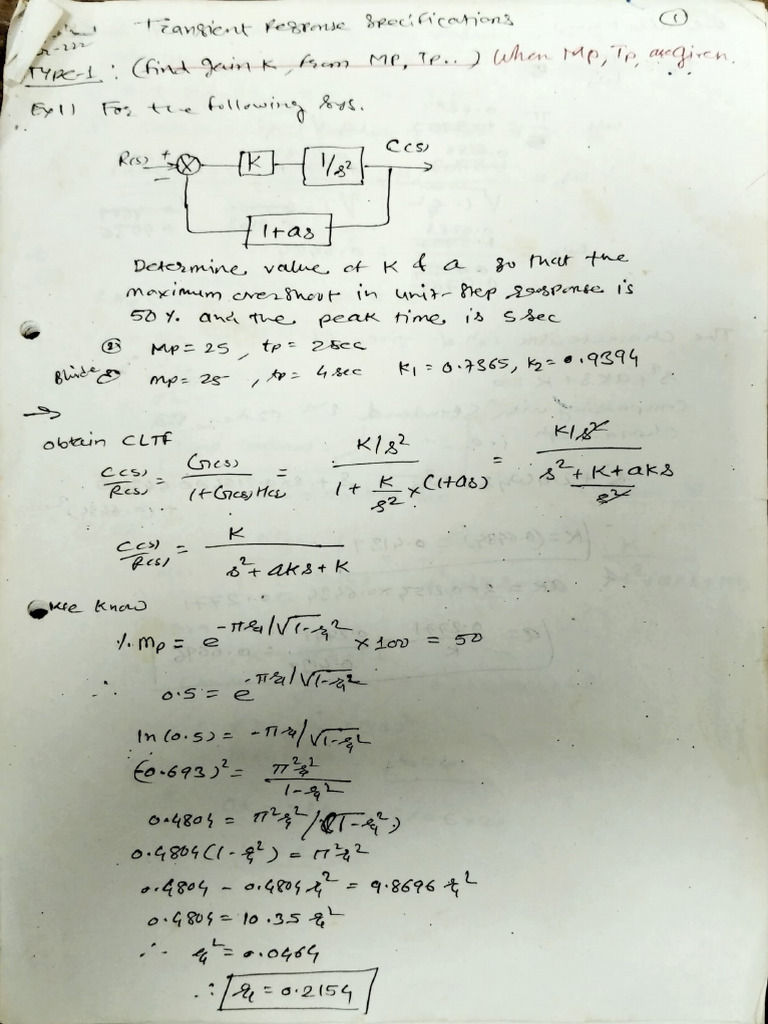 Transient Response Specifications ①
TYPE-1 : (find gain K, from MP, TP..) When Mp, Tp, are given.
Ex 1) For the following sys.
R(s) + - K 1/s² C(s)
1+as
Determine value of K & a so that the
maximum overshoot in unit-step response is
50 % and the peak time is 5 sec
② Mp = 25 , tp = 2 sec
③ mp = 25 , tp = 4 sec K1 = 0.7365, K2 = 0.9394
→
obtain CLTF
C(s)/R(s) = G(s)/1+G(s)H(s) = K/s² / 1 + K/s² × (1+as) = K/s² / s² + K + aKs / s²
C(s)/R(s) = K / s² + aKs + K
We Know
% Mp = e^-πξ/√1-ξ² × 100 = 50
∴ 0.5 = e^-πξ/√1-ξ²
ln(0.5) = -πξ/√1-ξ²
(-0.693)² = π²ξ² / 1-ξ²
0.4804 = π²ξ²/(1-ξ²)
0.4804(1-ξ²) = π²ξ²
0.4804 - 0.4804 ξ² = 9.8696 ξ²
0.4804 = 10.35 ξ²
∴ ξ² = 0.0464
∴ ξ = 0.2154